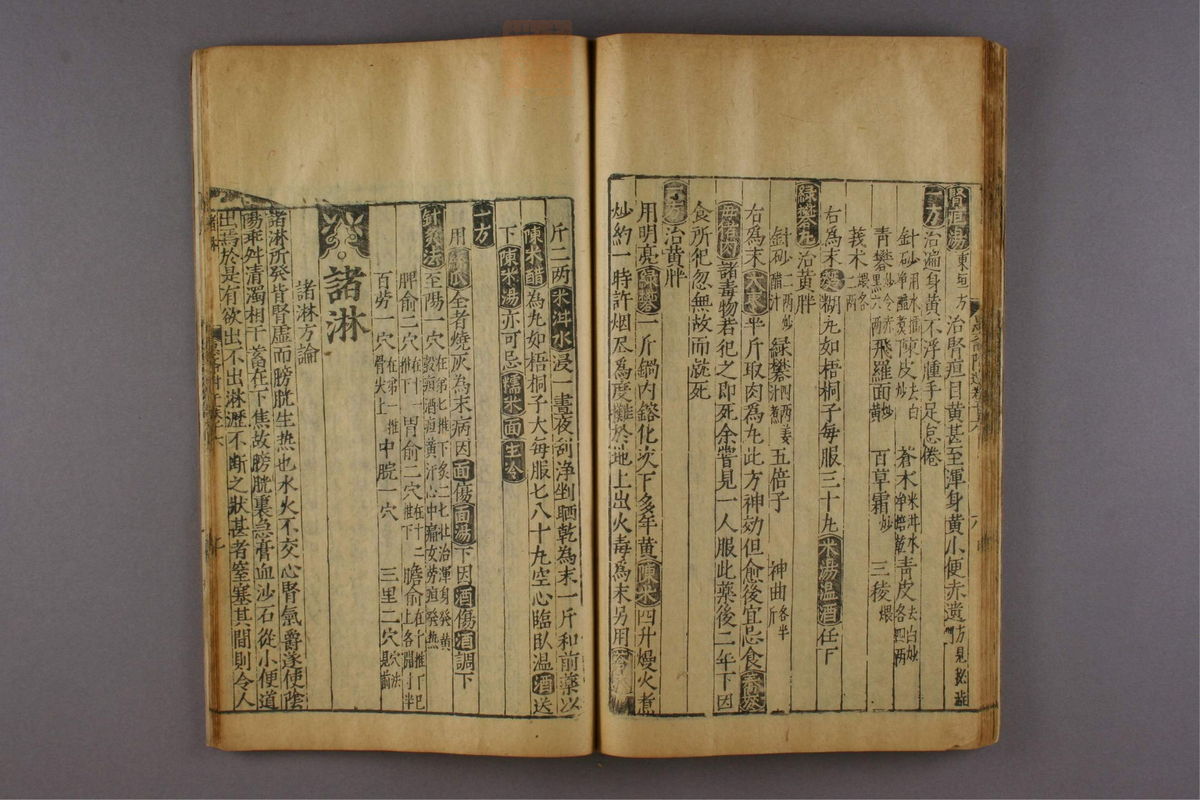 腎疸湯 東垣方 治腎疸目黃甚至渾身黃小便赤遺方見
一方 治遍身黃不浮腫手足怠倦
針砂 陳皮去白 蒼朮 青皮去白炒各四兩
青礬 飛羅面炒黃 百草霜炒 三稜煨
莪朮煨各二兩
右為末糊丸如梧桐子每服三十丸米湯溫酒任下
綠礬丸 治黃胖
針砂二兩炒醋汁 綠礬四兩姜汁煮 五倍子 神曲各半斤
右為末大棗半斤取肉為丸此方神効但愈後宜忌食蕎麥
母猪肉諸毒物若犯之即死余嘗見一人服此藥後二年下因
食所犯忽無故而就死
一方 治黃胖
用明亮綠礬一斤鍋內鎔化次下多年黃陳米四升熳火煮
炒約一時許烟尽為度攤於地上出火毒為末另用蒼朮
斤二兩米泔水浸一晝夜刮淨剉晒乾為末一斤和前藥以
陳米醋為丸如梧桐子大每服七八十丸空心臨臥温酒送
下陳米湯亦可忌糯米面生冷
一方
用絲瓜全者燒灰為末病因面傷面湯下因酒傷酒調下
針灸法 至陽一穴在弟七推下灸二七壯治渾身發黃
脾俞二穴在十一推下 胃俞二穴在十二推下 膽俞在十推下
百勞一穴在弟一推骨尖上 中脘一穴 三里二穴穴法見前
諸淋
諸淋方論
諸淋所發皆腎虛而膀胱生热也水火不交心腎氣欝遂使陰
陽乖舛清濁相干蓄在下焦故膀胱裏急膏血沙石從小便道
出焉於是有欲出不出淋瀝不断之狀甚者窒塞其間則令人